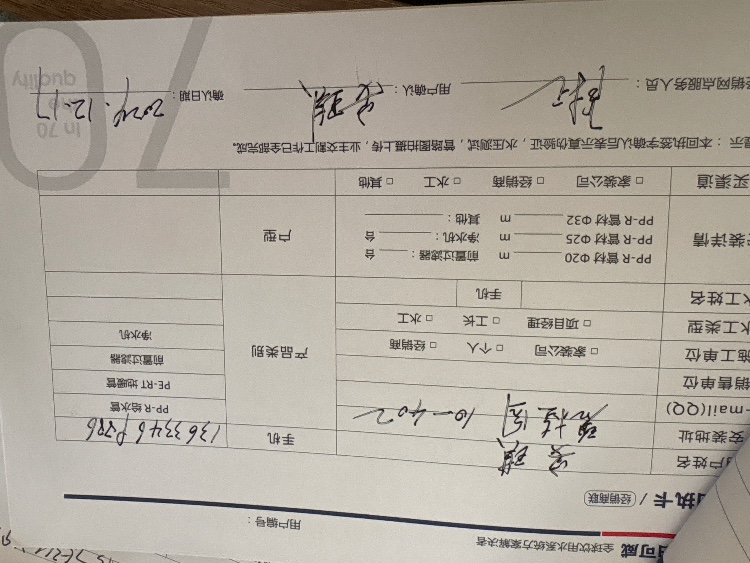 可威 全球饮用水系统方案解决者
用户编号：
执卡 / 经销商联
户姓名 手机 136 3346
安装地址 10-402
-mail(QQ) PP-R 给水管
销售单位 PE-RT 地暖管
施工单位 □ 家装公司 □ 个人 □ 经销商 产品类别 前置过滤器
水工类型 □ 项目经理 □ 工长 □ 水工 净水机
水工姓名 手机
装详情 PP-R 管材 Φ20 m 前置过滤器： 台 户型
PP-R 管材 Φ25 m 净水机： 台
PP-R 管材 Φ32 m 其他：
买渠道 □ 家装公司 □ 经销商 □ 水工 □ 其他
提示：本回执签字确认后表示真伪验证，水压测试，管路图拍摄上传，业主交割工作已全部完成。
经销网点服务人员： 用户确认： 确认日期：2024.12.17
In 70
the
quality
70